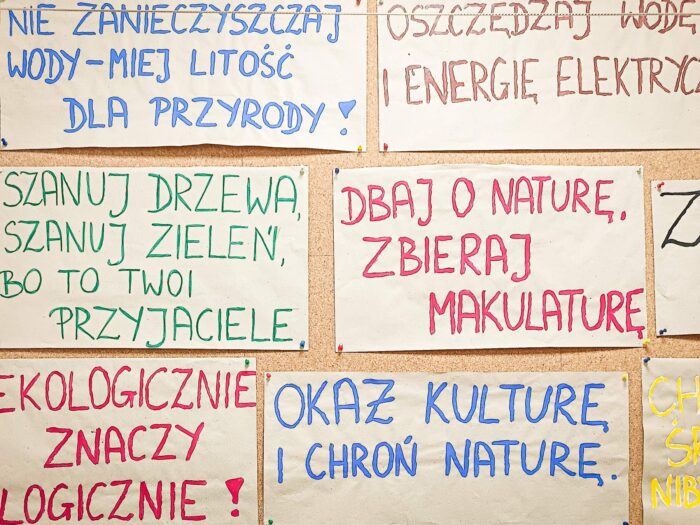 NIE ZANIECZYSZCZAJ
WODY-MIEJ LITOŚĆ
DLA PRZYRODY!
OSZCZĘDZAJ WODĘ
I ENERGIĘ ELEKTRYCZ
SZANUJ DRZEWA,
SZANUJ ZIELEŃ,
BO TO TWOI
PRZYJACIELE
DBAJ O NATURĘ.
ZBIERAJ
MAKULATURĘ
Z
EKOLOGICZNIE
ZNACZY
LOGICZNIE!
OKAŻ KULTURĘ
I CHROŃ NATURĘ.
CH
ŚR
NIB